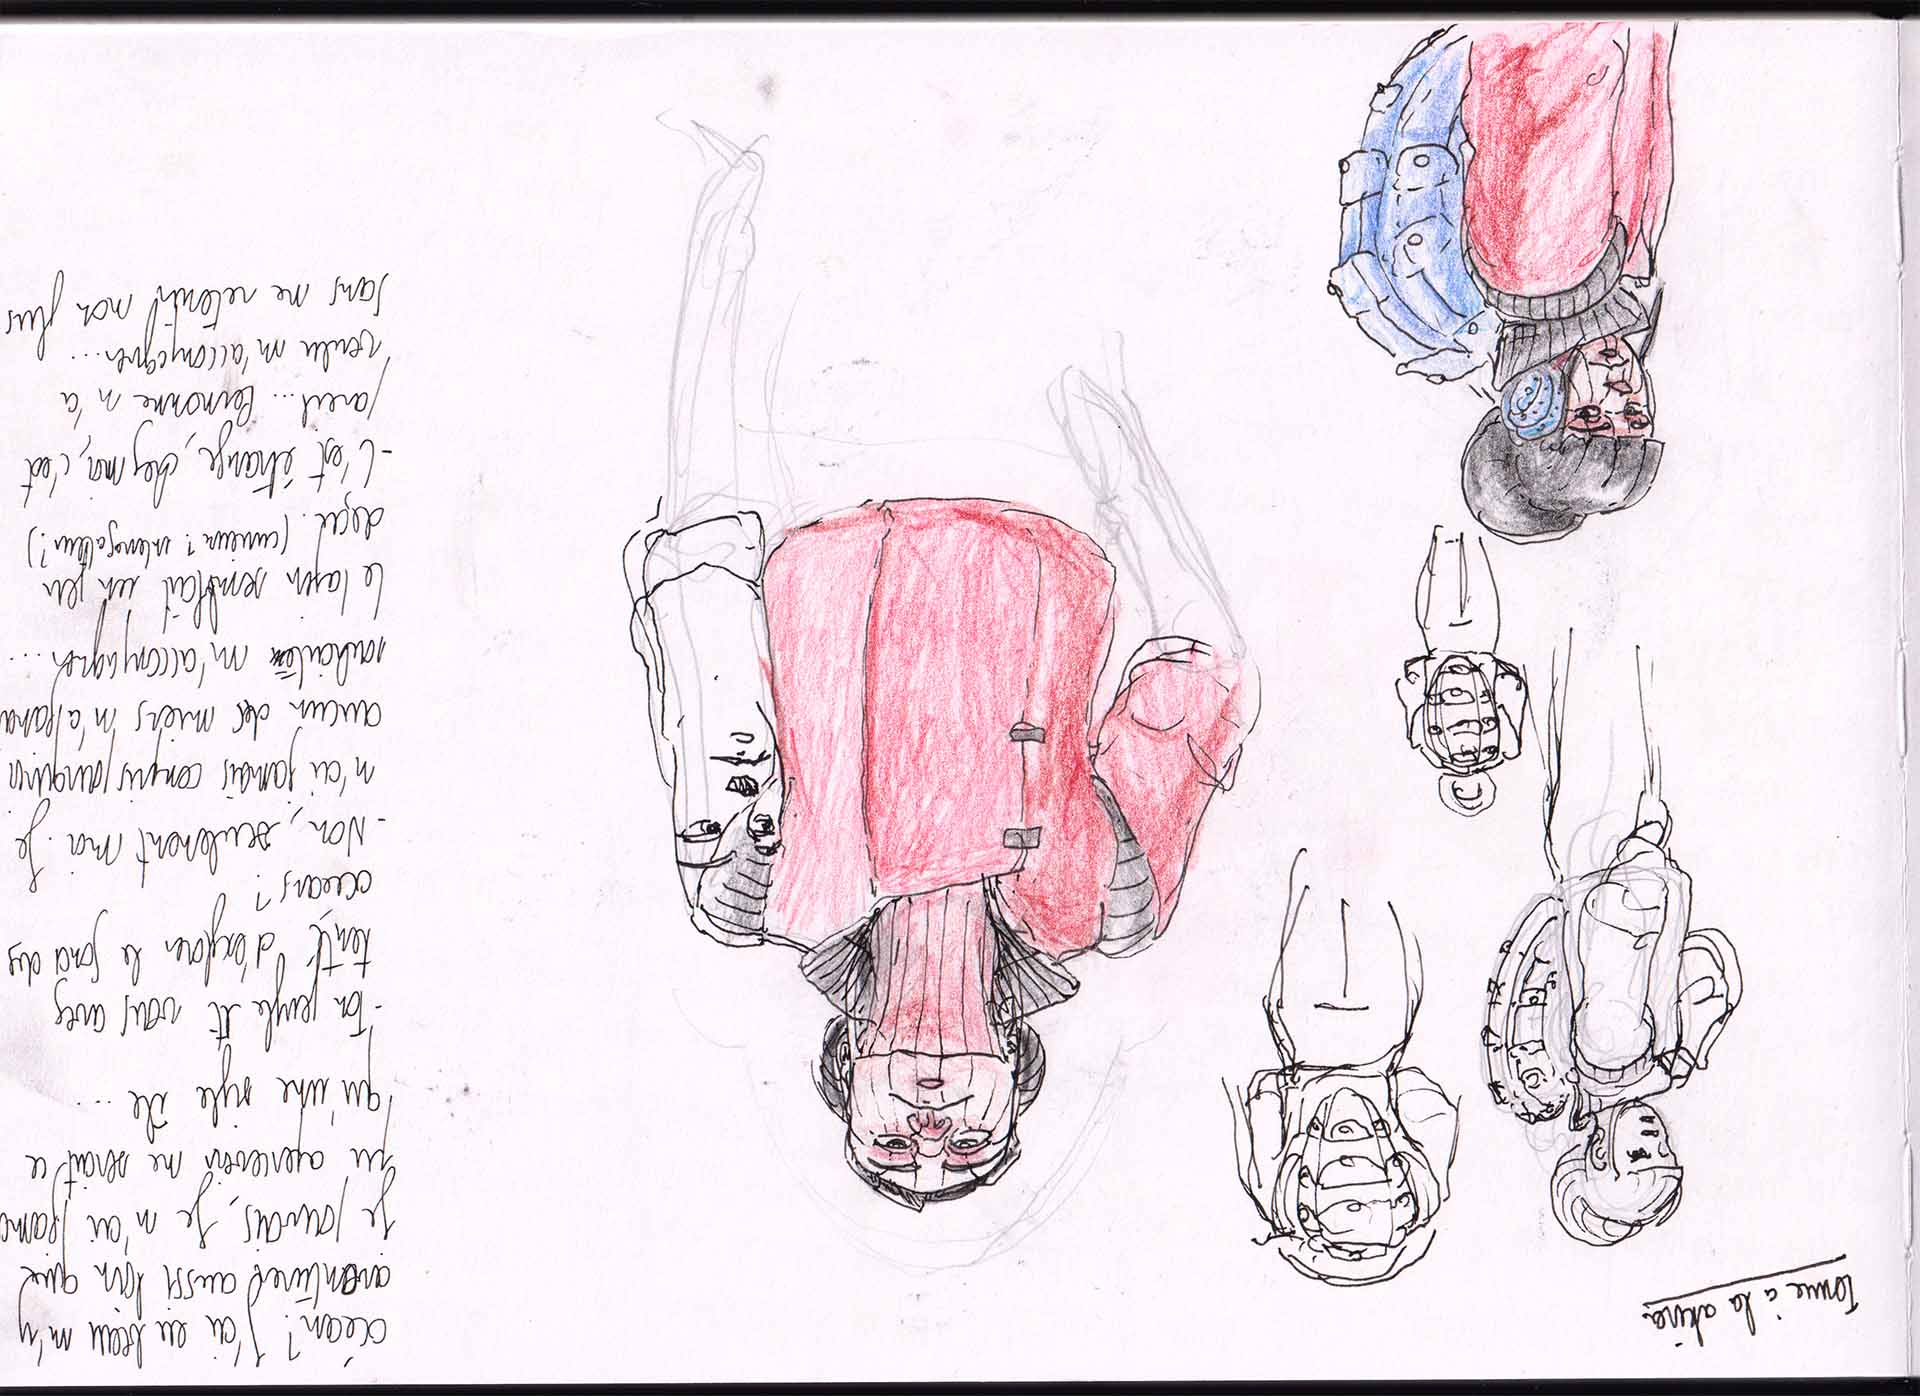 Tenue à la akira
océan? J'ai eu beau m'y
aventurer aussi loin que
je pouvais, je n'ai jamais
pu apercevoir ne serait ce
qu'une sile île ...
- Ton peuple et vous avez
tenté d'explorer le fond des
océans?
- Non, seulement moi. Je
n'ai jamais compris pourquoi
aucun des miens n'a jamais
souhaité m'accompagner...
Le semblait un peu
deçu. (curieux? interrogateur?)
- C'est étrange, chez moi, c'est
pareil... Personne n'a
voulu m'accompagner...
Sans me retenir non plus